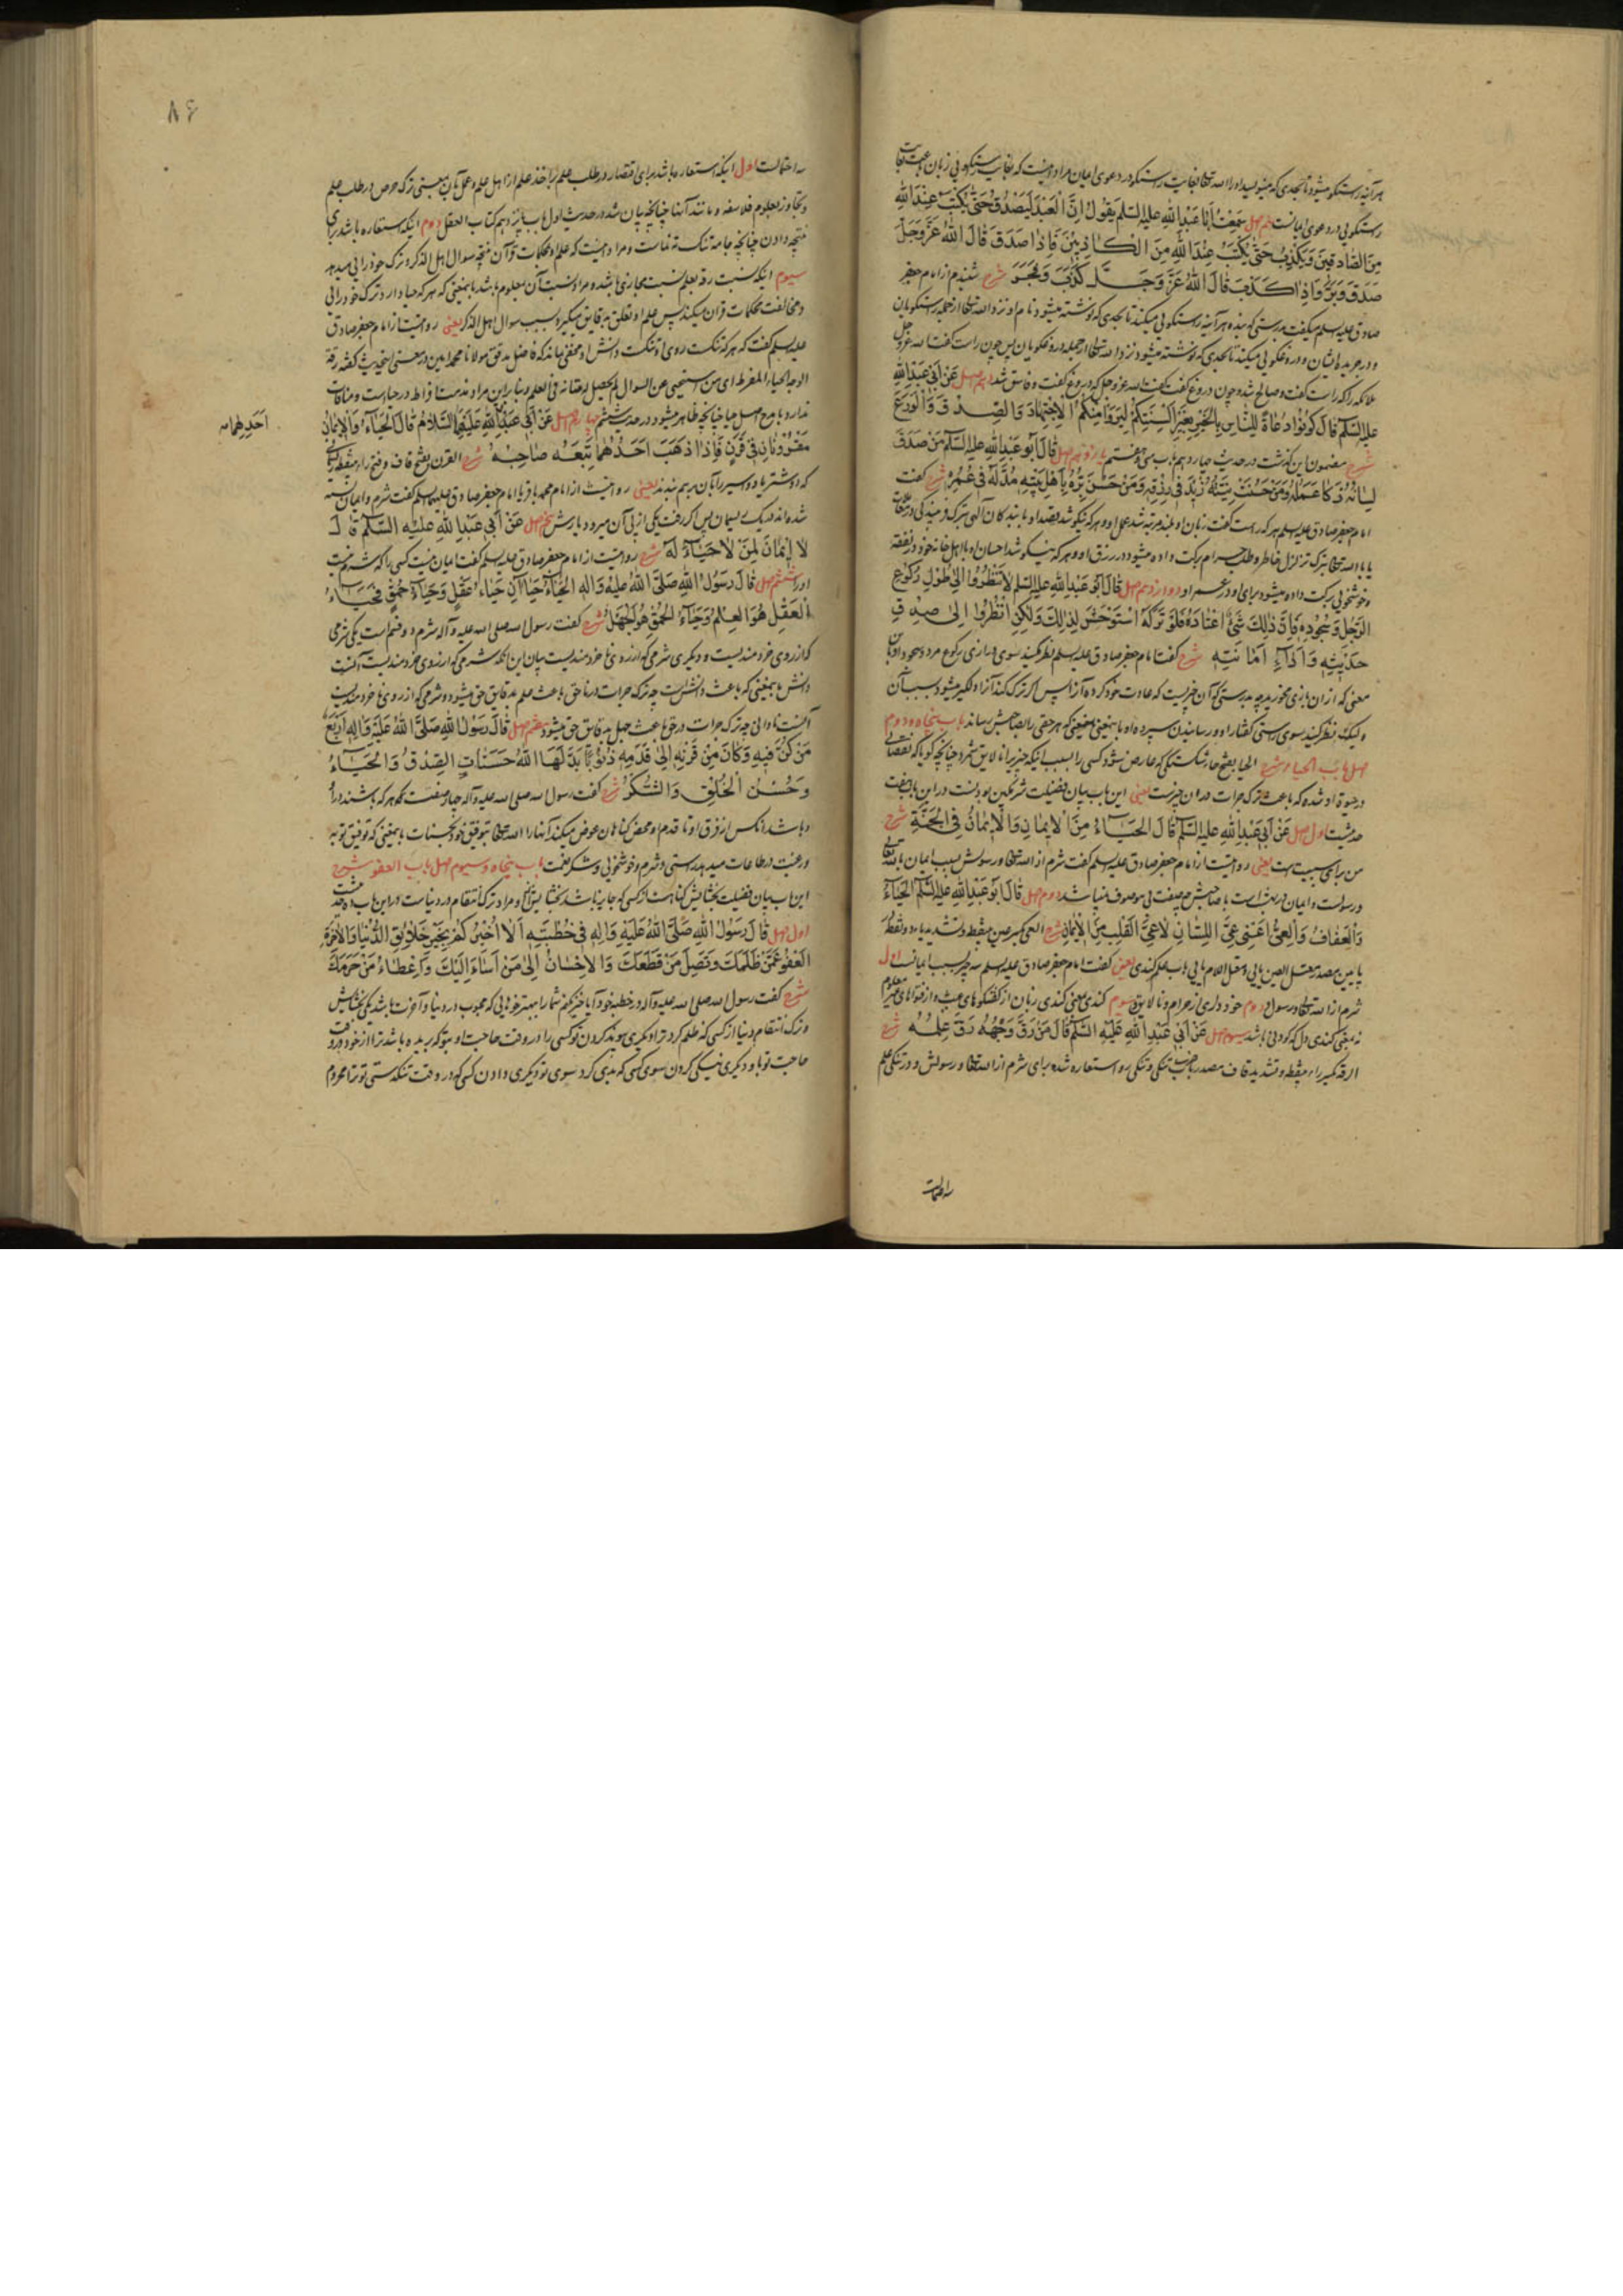 هرآینه راستگو میشود تا بحدی که مینویسد او را الله تعالی بغایت راستگو در دعوی ایمان مراد اینست که بغایت راستگویی زبان باعث غایت
راستگویی در دعوی ایمانست نهم اصل سَمِعْتُ أَبَا عَبْدِاللهِ علیه السّلم یَقُولُ إِنَّ الْعَبْدَ لَیَصْدُقُ حَتَّى یُکْتَبَ عِنْدَ اللهِ
مِنَ الصَّادِقِینَ وَیَکْذِبُ حَتَّى یُکْتَبَ عِنْدَ اللهِ مِنَ الْکَاذِبِینَ فَإِذَا صَدَقَ قَالَ اللهُ عَزَّوَجَلَّ
صَدَقَ وَبَرَّ وَإِذَا کَذَبَ قَالَ اللهُ عَزَّ وَجَلَّ کَذَبَ وَفَجَرَ شرح شنیدم از امام جعفر
صادق علیه السلم میگفت بدرستی که بنده هرآینه راستگویی میکند تا بحدی که نوشته میشود نام او نزد الله تعالی از جمله راستگویان
و در جریده ایشان و دروغگویی میکند تا بحدی که نوشته میشود نزد الله تعالی از جمله دروغگویان پس چون راست گفت الله عزوجل
ملائکه را که راست گفت و صالح شد و چون دروغ گفت گفت الله عزوجل که دروغ گفت و فاسق شد دهم اصل عَنْ أَبِی عَبْدِاللهِ
علیه السّلم قَالَ کُونُوا دُعَاةً لِلنَّاسِ بِالْخَیْرِ بِغَیْرِ أَلْسِنَتِکُمْ لِیَرَوْا مِنْکُمُ الِاجْتِهَادَ وَالصِّدْقَ وَالْوَرَعَ
شرح مضمون این گذشت در حدیث چهاردهم باب سی و هشتم یازدهم اصل قَالَ أَبُو عَبْدِاللهِ علیه السّلم مَنْ صَدَقَ
لِسَانُهُ زَکَا عَمَلُهُ وَمَنْ حَسُنَتْ نِیَّتُهُ زِیدَ فِی رِزْقِهِ وَمَنْ حَسُنَ بِرُّهُ بِأَهْلِ بَیْتِهِ مُدَّ لَهُ فِی عُمُرِهِ شرح گفت
امام جعفر صادق علیه السلم هر که راست گفت زبان او بلند مرتبه شد عمل او و هر که نیکو شد قصد او با بندگان الهی
یا با الله تعالی بترک تزلزل خاطر و طلب حرام برکت داده میشود در رزق او و هر که نیکو شد احسان او با اهل خانه خود در نفقه
و خوشخویی برکت داده میشود برای او در عمر او دوازدهم اصل قَالَ أَبُو عَبْدِاللهِ علیه السّلم لَا تَنْظُرُوا إِلَى طُولِ رُکُوعِ
الرَّجُلِ وَسُجُودِهِ فَإِنَّ ذَلِكَ شَیْءٌ اعْتَادَهُ فَلَوْ تَرَکَهُ اسْتَوْحَشَ لِذَلِكَ وَلَکِنِ انْظُرُوا إِلَى صِدْقِ
حَدِیثِهِ وَأَدَاءِ أَمَانَتِهِ شرح گفت امام جعفر صادق علیه السلم نظر مکنید سوی درازی رکوع مرد و سجود او
معنی که از آن بازی مخورید چه بدرستی که آن چیزیست که عادت خود کرده آنرا پس اگر ترک کند آنرا دلگیر میشود سبب آن
ولیک نظر کنید سوی راستی گفتار او و رسانیدن سپرده او باینمعنی که هر حقی را بصاحبش رساند باب پنجاه و دوم
اصل بَاب الحیاء شرح الحیا بفتح حا شکستگی که عارض شود کسی را بسبب اینکه چیزی را نالایق شمرد چنانچه گویا که نقصانی
در حیوة او شده که باعث ترک جرات در آن چیز است یعنی این باب بیان فضیلت شرمگین بودنست در این باب هفت
حدیثست اول اصل عَنْ أَبِی عَبْدِاللهِ علیه السّلم قَالَ الْحَیَاءُ مِنَ الْإِیمَانِ وَالْإِیمَانُ فِی الْجَنَّةِ شرح
من برای سببیت است یعنی روایتست از امام جعفر صادق علیه السلم گفت شرم از الله تعالی و رسولش بسبب ایمان بالله تعالی
و رسولست و ایمان در بهشت است دوم اصل قَالَ أَبُو عَبْدِاللهِ علیه السّلم الْحَیَاءُ
وَالْعَفَافُ وَالْعِیُّ أَعْنِی عِیَّ اللِّسَانِ لَا عِیَّ الْقَلْبِ مِنَ الْإِیمَانِ شرح العی بکسر عین بینقطه و تشدید یاء دو نقطه
در پایین مصدر معتل العین یایی و معتل اللام یایی باب علم کندی یعنی گفت امام جعفر صادق علیه السلم سه چیز بسبب ایمانست اول
شرم از الله تعالی و رسول دوم خودداری از حرام و نالایق سیوم کندی یعنی کندی زبان از گفتگوهای عبث و از فتواهای غیر معلوم
نه بمعنی کندی دل که کودنی باشد سیوم اصل عَنْ أَبِی عَبْدِاللهِ عَلَیْهِ السَّلَمُ قَالَ مَنْ رَقَّ وَجْهُهُ رَقَّ عِلْمُهُ شرح
الرقه بکسر راء بینقطه و تشدید قاف مصدر باب ضرب تنکی و تنکی رو استعاره شده برای شرم از الله تعالی و رسولش و در تنکی علم
سه احتمالست
سه احتمالست اول اینکه استعاره باشد برای اقتصار در طلب علم بر اخذ علم از اهل علم و عمل بآن بمعنی ترک حرص در طلب علم
و تجاوز بعلوم فلاسفه و مانند آنها چنانچه بیان شد در حدیث اول باب پانزدهم کتاب العقل دوم اینکه استعاره باشد برای
نتیجه دادن چنانچه جامه تنک ته نماست و مراد اینست که علم او بمحکمات قرآن نتیجه سوال اهل الذکر و ترک خودرایی میدهد
سیوم اینکه نسبت رقه بعلم نسبت مجازی باشد و مراد نسبت آن بمعلوم باشد باینمعنی که هر که حیا دارد ترک خودرایی
و مخالفت محکمات قرآن میکند پس علم او تعلق بدقایق میگیرد بسبب سوال اهل الذکر یعنی روایتست از امام جعفر صادق
علیه السلم گفت که هر که تنکست روی او تنکست دانش او مخفی نماند که فاضل مدقق مولانا محمد امین در معنی این حدیث گفته رقة
الوجه الحیاء المفرط ای من استحیی عن السوال لم یحصل له متانة فی العلم و بنابراین مراد مذمت افراط در حیاست و منافات
ندارد با مدح اصل حیا چنانچه ظاهر میشود در حدیث ششم چهارم اصل عَنْ أَبِی عَبْدِاللهِ عَلَیْهِمَا السَّلَامُ قَالَ الْحَیَاءُ وَالْإِیمَانُ
احَدِهِمَا
مَقْرُونَانِ فِی قَرَنٍ فَإِذَا ذَهَبَ أَحَدُهُمَا تَبِعَهُ صَاحِبُهُ شرح القرن بفتح قاف و فتح راء بینقطه
که دو شتر یا دو اسیر را بآن برهم بندند یعنی روایتست از امام محمد باقر یا امام جعفر صادق علیهما السلم گفت شرم و ایمان بسته
شده‌اند در یک ریسمان پس اگر رفت یکی از پی آن میرود یارش پنجم اصل عَنْ أَبِی عَبْدِاللهِ عَلَیْهِ السَّلَمُ قَالَ
لَا إِیمَانَ لِمَنْ لَا حَیَاءَ لَهُ شرح روایتست از امام جعفر صادق علیه السلم گفت ایمان نیست کسی را که شرم نیست
او را ششم اصل قَالَ رَسُولُ اللهِ صَلَّى اللهُ عَلَیْهِ وَآلِهِ الْحَیَاءُ حَیَاءَانِ حَیَاءُ عَقْلٍ وَحَیَاءُ حُمْقٍ فَحَیَاءُ
الْعَقْلِ هُوَ الْعِلْمُ وَحَیَاءُ الْحُمْقِ هُوَ الْجَهْلُ شرح گفت رسول الله صلی الله علیه و آله شرم دو قسم است یکی شرمی
که از روی خردمندیست و دیگری شرمی که از روی ناخردمندیست بیان این آنکه شرمی که از روی خردمندیست آنست
دانش باینمعنی که باعث دانش است چه ترک جرات در ناحق باعث علم بدقایق حق میشود و شرمی که از روی ناخردمندیست
آنست نادانی چه ترک جرات در حق باعث جهل بدقایق حق میشود هفتم اصل قَالَ رَسُولُ اللهِ صَلَّى اللهُ عَلَیْهِ وَآلِهِ أَرْبَعٌ
مَنْ کُنَّ فِیهِ وَکَانَ مِنْ قَرْنِهِ إِلَى قَدَمِهِ ذُنُوبًا بَدَّلَهَا اللهُ حَسَنَاتٍ الصِّدْقُ وَالْحَیَاءُ
وَحُسْنُ الْخُلُقِ وَالشُّکْرُ شرح گفت رسول الله صلی الله علیه و آله چهار صفتست که هر که باشند در او
و باشد آنکس از فرق او تا قدم او محض گناهان عوض میکند آنها را الله تعالی بتوفیق خود بحسنات باینمعنی که توفیق توبه
و رغبت در طاعات میدهد راستی و شرم و خوشخویی و شکر نعمت باب پنجاه و سیوم اصل باب العفو شرح
این باب بیان فضیلت بخشایش گناهست از کسی که جایز باشد بخشایش و مراد ترک انتقام در دنیاست در این باب ده حدیثست
اول اصل قَالَ رَسُولُ اللهِ صَلَّى اللهُ عَلَیْهِ وَآلِهِ فِی خُطْبَتِهِ أَلَا أُخْبِرُکُمْ بِخَیْرِ خَلَائِقِ الدُّنْیَا وَالْآخِرَةِ
الْعَفْوُ عَمَّنْ ظَلَمَكَ وَتَصِلُ مَنْ قَطَعَكَ وَالْإِحْسَانُ إِلَى مَنْ أَسَاءَ إِلَیْكَ وَإِعْطَاءُ مَنْ حَرَمَكَ
شرح گفت رسول الله صلی الله علیه و آله در خطبه خود آیا خبر نکنم شما را ببهتر خوهایی که محبوب در دنیا و آخرت باشد یکی بخشایش
و ترک انتقام در دنیا از کسی که ظلم کرد ترا دیگری پیوند کردن تو کسی را در وقت حاجت او بتو که بریده باشد ترا از خود در وقت
حاجت تو باو دیگری نیکی کردن سوی کسی که بدی کرد سوی تو دیگری دادن کسی که در وقت تنگدستی تو ترا محروم